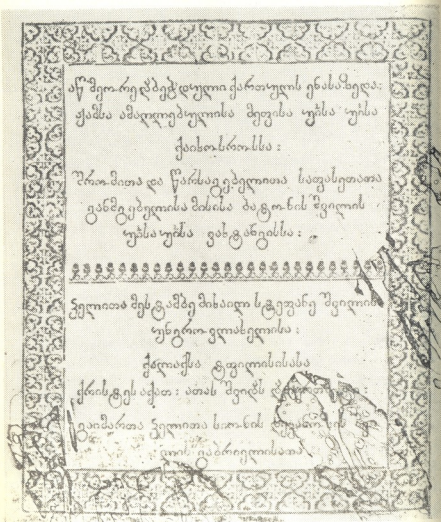 აწ მეორედ ბეჭდული ქართულს ენასა ზედა:
ჟამსა ამაღლებულისა მეფისა უ̃ისა უ̃ისა
ქაიხოსროსსა:
შრომითა და წარსაგებელითა საფასეთათა
განმგებელისა მისისა ბატონის შვილის
უ̃ისა უ̃ისა ვახტანგისსა:
ჴელითა მესტამბე მიხაილ სტეფანე შვილის
უნგროვლახელისა:
ქალაქსა ტფილისისასა
ქრისტეს აქათ: ათას შვიდას
გაიმართა ჴელითა
გაბრიელისათა